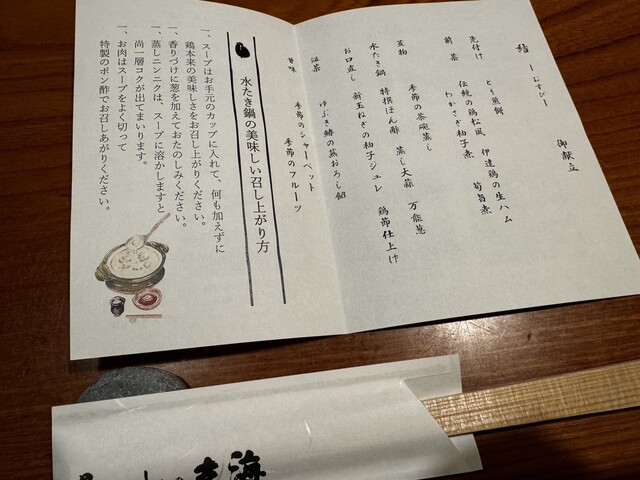 御献立
結 ーむすびー
先付け とり煎餅 伊達鶏の生ハム
前菜 伝統の鶏松風 筍旨煮
わかさぎ柚子煮
蓋物 季節の茶碗蒸し
水たき鍋 特撰ぽん酢 蒸し大蒜 万能葱
お口直し 新玉ねぎの柚子ジュレ 鶏節仕上げ
温菜 ゆぶき鰆の蒸おろし餡
甘味 季節のシャーベット
季節のフルーツ
水たき鍋の美味しい召し上がり方
一、スープはお手元のカップに入れて、何も加えずに
鶏本来の美味しさをお召し上がりください。
一、香りづけに葱を加えておたのしみください。
一、蒸しニンニクは、スープに溶かしますと
尚一層コクが出てまいります。
一、お肉はスープをよく切って
特製のポン酢でお召しあがりください。
海